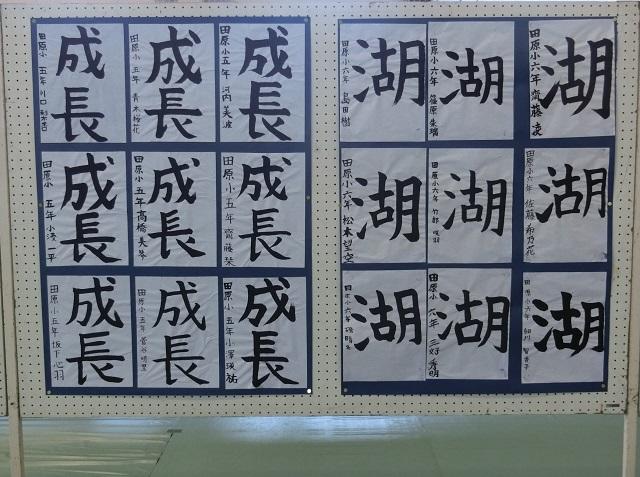 成長
田原小 五年
成長
田原小 五年 青木桜花
成長
田原小五年 河内美波
成長
田原小 五年 小湊一平
成長
田原小五年 高橋美琴
成長
田原小五年 齋藤栞
成長
田原小五年 坂下心羽
成長
田原小五年 菅谷明里
成長
田原小五年 小澤瑛祐
湖
田原小六年 島田樹
湖
田原小六年 篠原朱瑞
湖
田原小六年 齋藤凌
湖
田原小六年 松本望空
湖
田原小六年
湖
田原小六年 佐藤希乃花
湖
田原小六年
湖
田原小 六年 三好秀明
湖
田原小六年 細川